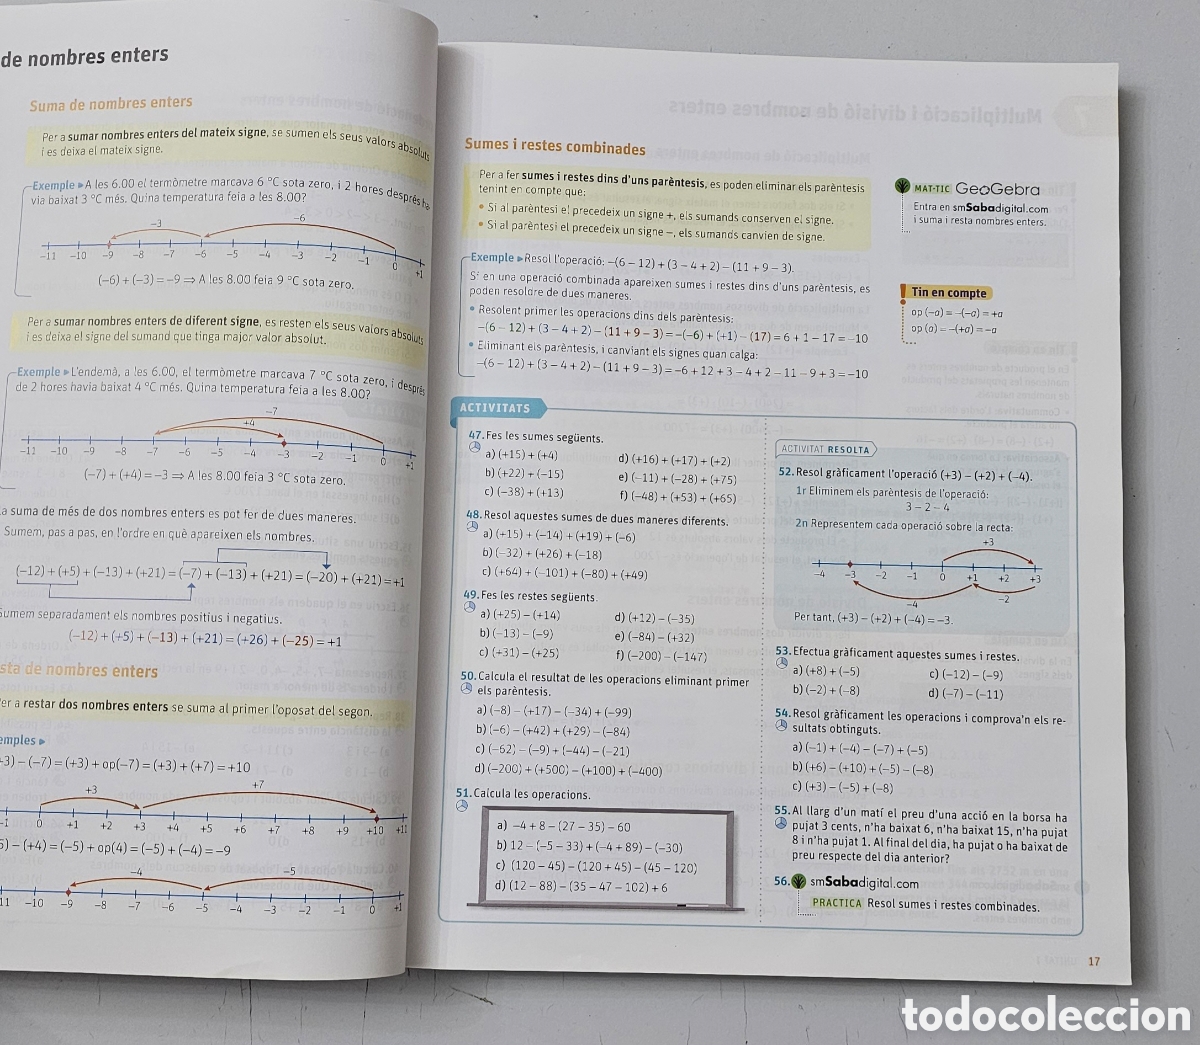 de nombres enters
Suma de nombres enters
Per a sumar nombres enters del mateix signe, se sumen els seus valors absoluts
i es deixa el mateix signe.
Exemple A les 6.00 el termòmetre marcava 6 °C sota zero, i 2 hores després ha
via baixat 3 °C més. Quina temperatura feia a les 8.00?
-3
-6
-11 -10 -9 -8 -7 -6 -5 -4 -3 -2 -1 0 +1
(-6) + (-3) = -9 ⇒ A les 8.00 feia 9 °C sota zero.
Per a sumar nombres enters de diferent signe, es resten els seus valors absoluts
i es deixa el signe del sumand que tinga major valor absolut.
Exemple L'endemà, a les 6.00, el termòmetre marcava 7 °C sota zero, i després
de 2 hores havia baixat 4 °C més. Quina temperatura feia a les 8.00?
-7
+4
-11 -10 -9 -8 -7 -6 -5 -4 -3 -2 -1 0 +1
(-7) + (+4) = -3 ⇒ A les 8.00 feia 3 °C sota zero.
a suma de més de dos nombres enters es pot fer de dues maneres.
Sumem, pas a pas, en l'ordre en què apareixen els nombres.
(-12) + (+5) + (-13) + (+21) = (-7) + (-13) + (+21) = (-20) + (+21) = +1
Sumem separadament els nombres positius i negatius.
(-12) + (+5) + (-13) + (+21) = (+26) + (-25) = +1
sta de nombres enters
er a restar dos nombres enters se suma al primer l'oposat del segon.
emples
+3) - (-7) = (+3) + op(-7) = (+3) + (+7) = +10
+3
+7
-1 0 +1 +2 +3 +4 +5 +6 +7 +8 +9 +10 +11
5) - (+4) = (-5) + op(4) = (-5) + (-4) = -9
-4
-5
11 -10 -9 -8 -7 -6 -5 -4 -3 -2 -1 0 +1
Sumes i restes combinades
Per a fer sumes i restes dins d'uns parèntesis, es poden eliminar els parèntesis
tenint en compte que:
• Si al parèntesi el precedeix un signe +, els sumands conserven el signe.
• Si al parèntesi el precedeix un signe -, els sumands canvien de signe.
Exemple Resol l'operació: -(6 - 12) + (3 - 4 + 2) - (11 + 9 - 3).
Si en una operació combinada apareixen sumes i restes dins d'uns parèntesis, es
poden resoldre de dues maneres.
• Resolent primer les operacions dins dels parèntesis:
-(6 - 12) + (3 - 4 + 2) - (11 + 9 - 3) = -(-6) + (+1) - (17) = 6 + 1 - 17 = -10
• Eliminant els parèntesis, i canviant els signes quan calga:
-(6 - 12) + (3 - 4 + 2) - (11 + 9 - 3) = -6 + 12 + 3 - 4 + 2 - 11 - 9 + 3 = -10
MAT-TIC GeoGebra
Entra en smSabadigital.com
i suma i resta nombres enters.
Tin en compte
op (-a) = -(-a) = +a
op (a) = -(+a) = -a
ACTIVITATS
47. Fes les sumes següents.
a) (+15) + (+4)
d) (+16) + (+17) + (+2)
b) (+22) + (-15)
e) (-11) + (-28) + (+75)
c) (-38) + (+13)
f) (-48) + (+53) + (+65)
48. Resol aquestes sumes de dues maneres diferents.
a) (+15) + (-14) + (+19) + (-6)
b) (-32) + (+26) + (-18)
c) (+64) + (-101) + (-80) + (+49)
49. Fes les restes següents.
a) (+25) - (+14)
d) (+12) - (-35)
b) (-13) - (-9)
e) (-84) - (+32)
c) (+31) - (+25)
f) (-200) - (-147)
50. Calcula el resultat de les operacions eliminant primer
els parèntesis.
a) (-8) - (+17) - (-34) + (-99)
b) (-6) - (+42) + (+29) - (-84)
c) (-62) - (-9) + (-44) - (-21)
d) (-200) + (+500) - (+100) + (-400)
51. Calcula les operacions.
a) -4 + 8 - (27 - 35) - 60
b) 12 - (-5 - 33) + (-4 + 89) - (-30)
c) (120 - 45) - (120 + 45) - (45 - 120)
d) (12 - 88) - (35 - 47 - 102) + 6
ACTIVITAT RESOLTA
52. Resol gràficament l'operació (+3) - (+2) + (-4).
1r Eliminem els parèntesis de l'operació:
3 - 2 - 4
2n Representem cada operació sobre la recta:
+3
-4 -3 -2 -1 0 +1 +2 +3
-4
-2
Per tant, (+3) - (+2) + (-4) = -3.
53. Efectua gràficament aquestes sumes i restes.
a) (+8) + (-5)
c) (-12) - (-9)
b) (-2) + (-8)
d) (-7) - (-11)
54. Resol gràficament les operacions i comprova'n els re-
sultats obtinguts.
a) (-1) + (-4) - (-7) + (-5)
b) (+6) - (+10) + (-5) - (-8)
c) (+3) - (-5) + (-8)
55. Al llarg d'un matí el preu d'una acció en la borsa ha
pujat 3 cents, n'ha baixat 6, n'ha baixat 15, n'ha pujat
8 i n'ha pujat 1. Al final del dia, ha pujat o ha baixat de
preu respecte del dia anterior?
56. smSabadigital.com
PRACTICA Resol sumes i restes combinades.
17
todocoleccion